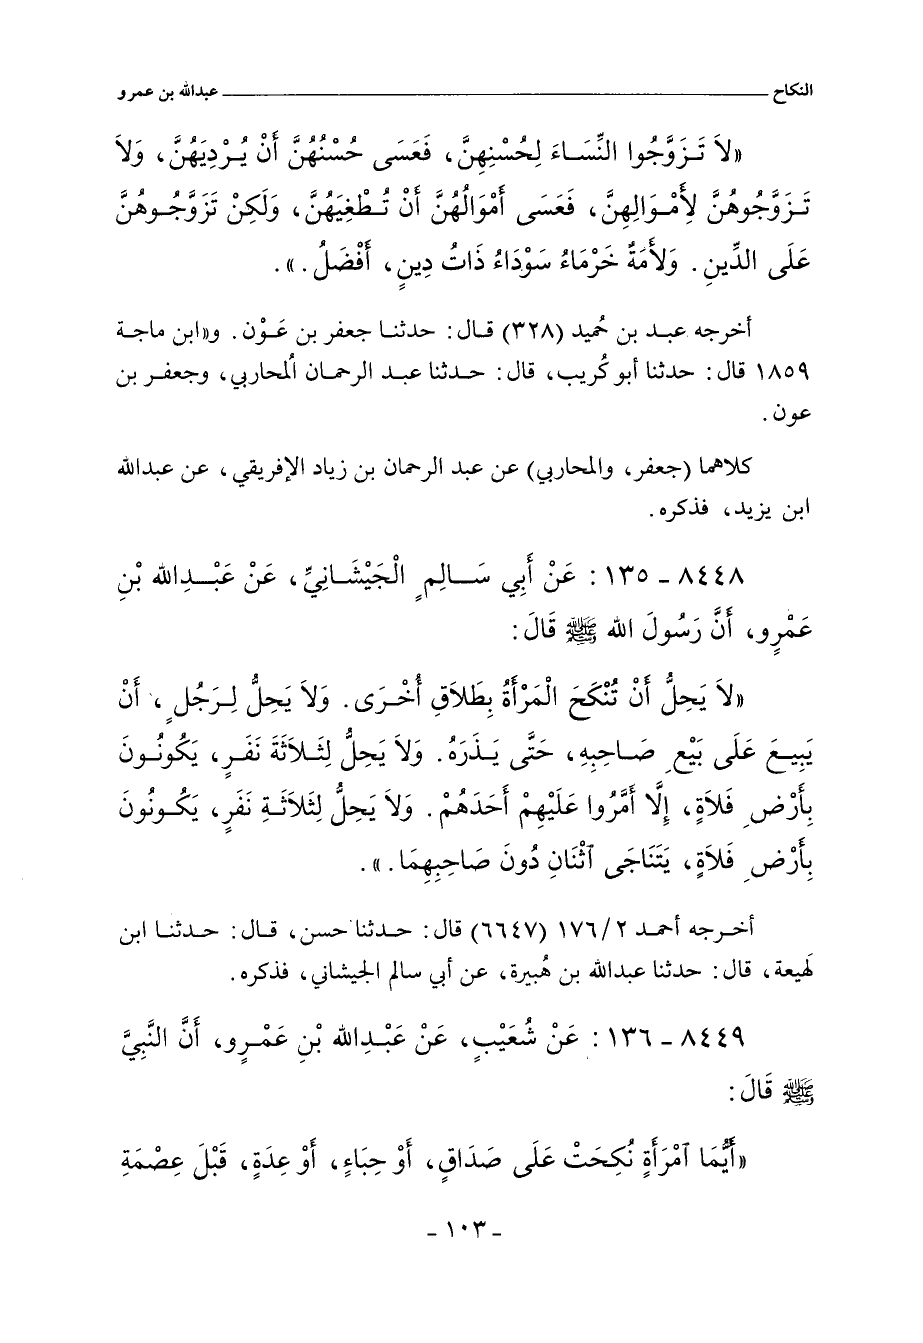 النكاح ــــــــــــ عبدالله بن عمرو
«لاَ تَزَوَّجُوا النِّسَاءَ لِحُسْنِهِنَّ، فَعَسَى حُسْنُهُنَّ أَنْ يُرْدِيَهُنَّ، وَلاَ
تَزَوَّجُوهُنَّ لِأَمْوَالِهِنَّ، فَعَسَى أَمْوَالُهُنَّ أَنْ تُطْغِيَهُنَّ، وَلَكِنْ تَزَوَّجُوهُنَّ
عَلَى الدِّينِ. وَلأَمَةٌ خَرْمَاءُ سَوْدَاءُ ذَاتُ دِينٍ، أَفْضَلُ.».
أخرجه عبد بن حُميد (٣٢٨) قال: حدثنا جعفر بن عَوْن. و«ابن ماجة
١٨٥٩ قال: حدثنا أبو كُريب، قال: حدثنا عبد الرحمان المُحاربي، وجعفر بن
عون.
كلاهما (جعفر، والمحاربي) عن عبد الرحمان بن زياد الإفريقي، عن عبدالله
ابن يزيد، فذكره.
٨٤٤٨ - ١٣٥: عَنْ أَبِي سَالِمٍ الْجَيْشَانِيِّ، عَنْ عَبْدِالله بْنِ
عَمْرٍو، أَنَّ رَسُولَ الله ﷺ قَالَ:
«لاَ يَحِلُّ أَنْ تُنْكَحَ الْمَرْأَةُ بِطَلاَقِ أُخْرَى. وَلاَ يَحِلُّ لِرَجُلٍ، أَنْ
يَبِيعَ عَلَى بَيْعِ صَاحِبِهِ، حَتَّى يَذَرَهُ. وَلاَ يَحِلُّ لِثَلاَثَةَ نَفَرٍ، يَكُونُونَ
بِأَرْضِ فَلاَةٍ، إِلَّا أَمَّرُوا عَلَيْهِمْ أَحَدَهُمْ. وَلاَ يَحِلُّ لِثَلاَثَةِ نَفَرٍ، يَكُونُونَ
بِأَرْضِ فَلاَةٍ، يَتَنَاجَى ٱثْنَانِ دُونَ صَاحِبِهِمَا.».
أخرجه أحمد ١٧٦/٢ (٦٦٤٧) قال: حدثنا حسن، قال: حدثنا ابن
لَهيعة، قال: حدثنا عبدالله بن هُبيرة، عن أبي سالم الجيشاني، فذكره.
٨٤٤٩ - ١٣٦: عَنْ شُعَيْبٍ، عَنْ عَبْدِالله بْنِ عَمْرٍو، أَنَّ النَّبِيَّ
ﷺ قَالَ:
«أَيُّمَا ٱمْرَأَةٍ نُكِحَتْ عَلَى صَدَاقٍ، أَوْ حِبَاءٍ، أَوْ عِدَةٍ، قَبْلَ عِصْمَةِ
- ١٠٣ -